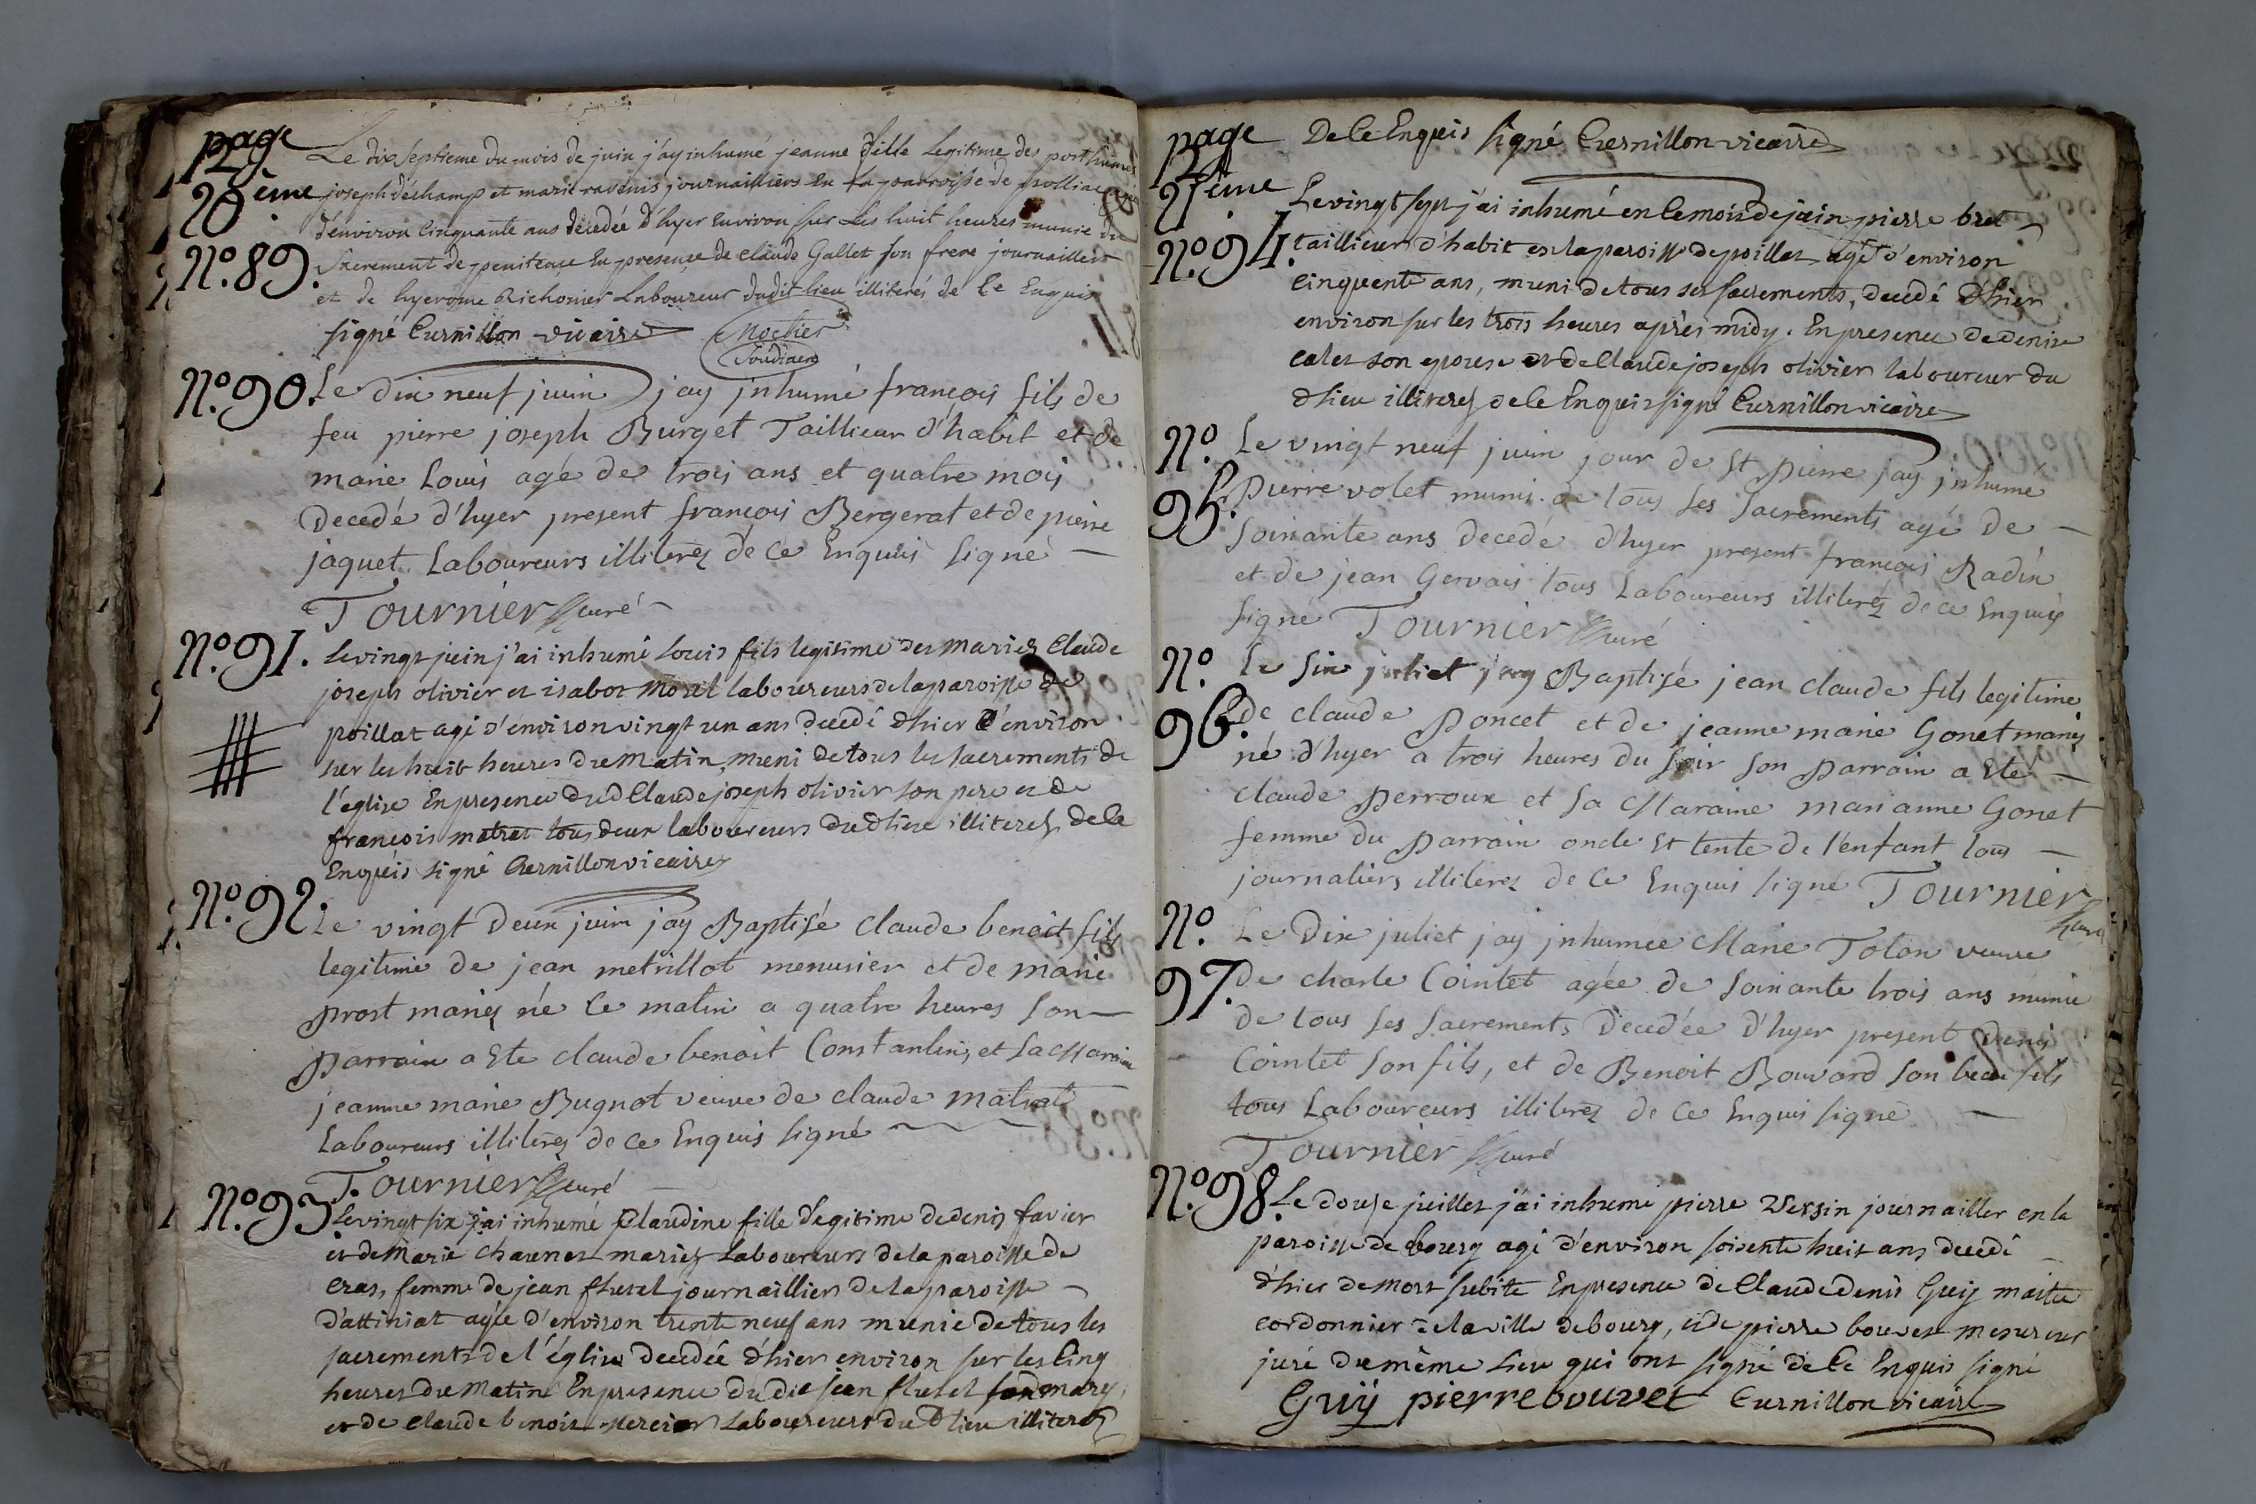 page
20ème
N.° 89.
Le dix septieme du mois de juin j'ay inhumé jeanne fille legitime des
joseph dechamp et marie ravenis journailliers en la parroisse de polliac
d'environ Cinquante ans décedée d'hyer environ sur les huit heures munie du
Sacrement de penitence En presence de Claude Gallet son frere journaillier
et de hyerome Richonier Laboureur dudit lieu illiterés de Ce Enquis
signé Curnillon vicaire
N.° 90.
Le dix neuf juin jay jnhumé françois fils de
feu pierre joseph Burget Taillieur d'habit et de
marie Louis agé de trois ans et quatre mois
Decedé d'hyer present françois Bergerat et de pierre
jaquet Laboureurs illiterez de Ce Enquis Signé —
Tournier curé
N.° 91.
Le vingt juin j'ai inhumé Louis fils legitime des mariez Claude
joseph olivier et isabot morel laboureurs de la paroisse de
poillat agé d'environ vingt un ans decedé d'hier d'environ
sur les huit heures du matin, muni de tous les sacrements de
l'église En presence dud Claude joseph olivier son pere et de
françois matrat tous deux laboureurs dud lieu illiterez de Ce
Enquis signé Curnillon vicaire
N.° 92.
Le vingt Deux juin jay Baptisé Claude benoit fils
legitime de jean metrillot menusier et de marie
prost mariez né Ce matin a quatre heures Son —
parrain a Eté claude benoit Constantin, et Sa Maraine
jeanne marie Bugnot veuve de claude matrat
Laboureurs illiterez de Ce Enquis Signé
Tournier curé
N.° 93
Le vingt six j'ai inhumé Claudine fille legitime de denis favier
et de Marie Chavenet mariez Laboureurs de la paroisse de
Cras, femme de jean fluret journaillier de la paroisse
D'attiniat agée d'environ trente neuf ans munie de tous les
sacrements de l'église decedée d'hier environ sur les Cinq
heures du Matin En presence du dit jean fluret son mary,
et de Claude benoit mercier Laboureurs du D lieu illiterez
page
21ème
De Ce Enquis signé Curnillon vicaire
N.° 94.
Le vingt sept j'ai inhumé en le mois de juin pierre bret
taillieur d'habit en la paroisse de poillat agé d'environ
Cinquente ans, muni de tous ses sacrements, decedé d'hier
environ sur les trois heures après midy. En presence de denise
calet son epouse et de Claude joseph olivier laboureur du
d lieu illiterez de Ce Enquis signé Curnillon vicaire
N.° 95.
Le vingt neuf juin jour de St pierre jay jnhumé
pierre volet muni de tous Ses Sacrements agé de —
Soixante ans Decedé d'hyer present françois Radin
et de jean Gervais tous Laboureurs illiterez de Ce Enquis
Signé Tournier curé
N.° 96.
Le Six juliet jay Baptisé jean claude fils legitime
de claude poncet et de jeanne marie Gonet mariez
né d'hyer a trois heures du Soir Son parrain a Eté —
Claude perroux et Sa Maraine marianne Gonet
femme du parrain oncle Et tente de l'enfant tous —
journaliers illiterez de Ce Enquis Signé Tournier
curé
N.° 97.
Le Dix juliet jay jnhumée Marie Tolon veuve
De charle Cointet agée de Soixante trois ans munie
de tous Ses Sacrements Decedée d'hyer present Denis
Cointet Son fils, et de Benoit Bouvard Son beau fils
tous Laboureurs illiterez de Ce Enquis Signé —
Tournier curé
N.° 98.
Le douse juillet j'ai inhumé pierre Versin journaillier en la
paroisse de bourg agé d'environ soisente huit ans decedé
d'hier de mort subite En presence de Claude denis Guÿ maitre
cordonnier de la ville de bourg, et de pierre bouvet mesureur
juré du même Lieu qui ont signé de Ce Enquis signé
Guÿ pierre bouvet Curnillon vicaire